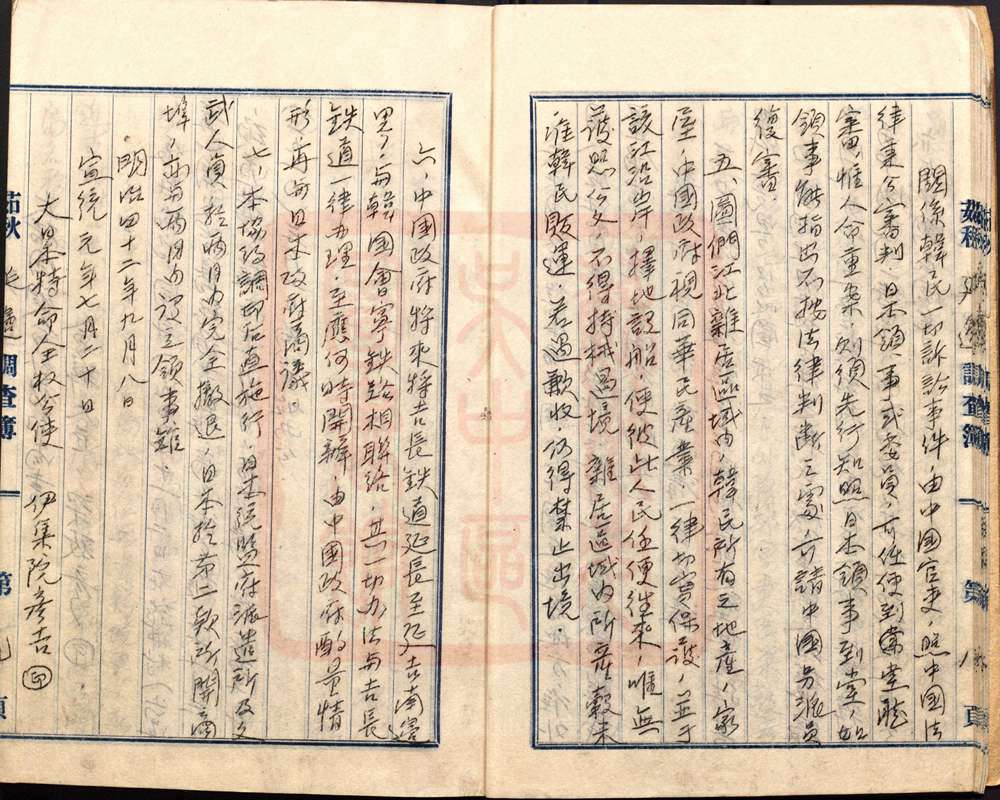 關係韓民一切訴訟事件，由中國官吏，照中國法
律秉公審判，日本領事或委員，可任便到堂聽
審，惟人命重案，則須先行知照日本領事到堂，如
領事能指出不按法律判斷之處，可請中國另派員
復審。
五、圖們江北雜居區域內，韓民所有之地產，家
屋，中國政府視同華民產業，一律切實保護，並于
該江沿岸，擇地設船，便彼此人民任便往來，唯無
護照公文，不得持械過境，雜居區域內所產穀米
准韓民販運，若遇歉收，仍得禁止出境。
六、中國政府將來將吉長鉄道延長至延吉南邊
界，与韓国會寧鉄路相聯絡，其一切办法与吉長
鉄道一律办理，至應何時開辦，由中國政府酌量情
形，再与日本政府商議。
七、本協約調印后直施行，日本統監府派遣所及文
武人員，於兩月內完全撤退，日本於第二款所開商
埠，亦与兩月內設立領事館。
明治四十二年九月 日
宣統元年七月二十日
大日本特命全权公使 伊集院彥吉 ㊞
茹秋
調查簿
第
頁
調查簿
第 八 頁